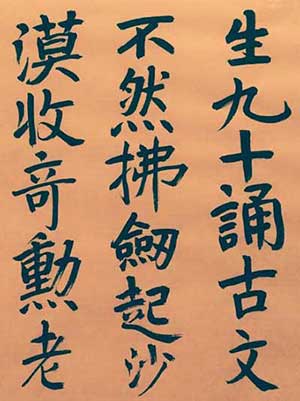 生九十誦古文
不然拂劒起沙
漠收竒勳老